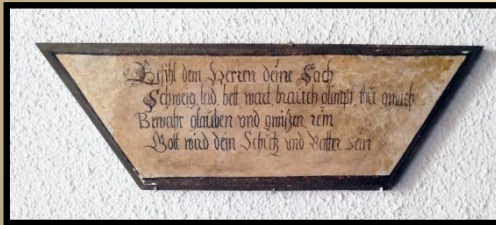 Befihl dem Herren deine Sach
Schweig, leid, bett, wart, brauch glimpf, thu gmach
Bewahr glauben und gwißen rein
Gott wird dein Schutz und Vatter sein